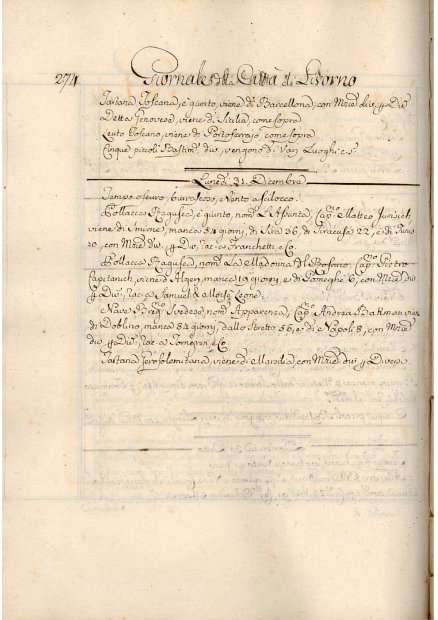 274
Giornale della Città di Livorno
Tartana Toscana, è quinto, viene di Barcellona, con Mzie div. p Div.
Detta Genovese, viene di Sicilia, come sopra
Leuto Toscano, viene di Portoferrajo, come sopra
Cinque piccoli Bastim. div. vengono di Varj Luoghi c. s.
Luned. 31. Dicembre
Tempo oscuro, burascoso, e Vento a scilocco.
Pollacca Ragusea, è quinto, nom. L'Assunta, Cap.no Matteo Jurisich,
viene di Smirne, manca 54 giorni, di Scio 36, di Siracusa 22, e di Tunis
20, con Mzie div. p Div. rac. a Franchetti, e Co.
Pollacca Ragusea, nom. La Madonna del Rosario, Cap.no Pietro
viene d'Algeri, manca 19 giorni, e di 6, con Mzie div.
p Div. rac. a Samuel e Moisè Leone.
Nave Svedese, nom. Apparenza, Cap.no Andrea viene
di Doblino, manca 84 giorni, dallo Stretto 56, e di Napoli 8, con Mzie
div. p Div. rac. a e Co
Tartana Gerosolimitana, viene di Marsilia, con Mzie div. p Diversi.